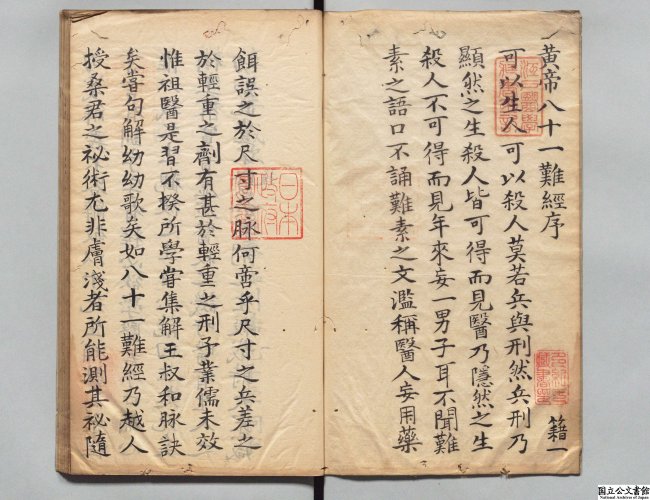 黄帝八十一難經序
可以生人可以殺人莫若兵與刑然兵刑乃
顯然之生殺人皆可得而見醫乃隱然之生
殺人不可得而見年來妄一男子耳不聞難
素之語口不誦難素之文濫稱醫人妄用藥
籍一
餌誤之於尺寸之脉何啻乎尺寸之兵差之
於輕重之劑有甚於輕重之刑予業儒未效
惟祖醫是習不揆所學嘗集解王叔和脉訣
矣嘗句解幼幼歌矣如八十一難經乃越人
授桑君之祕術尤非膚淺者所能測其祕隨
日本
国立公文書館
National Archives of Japan